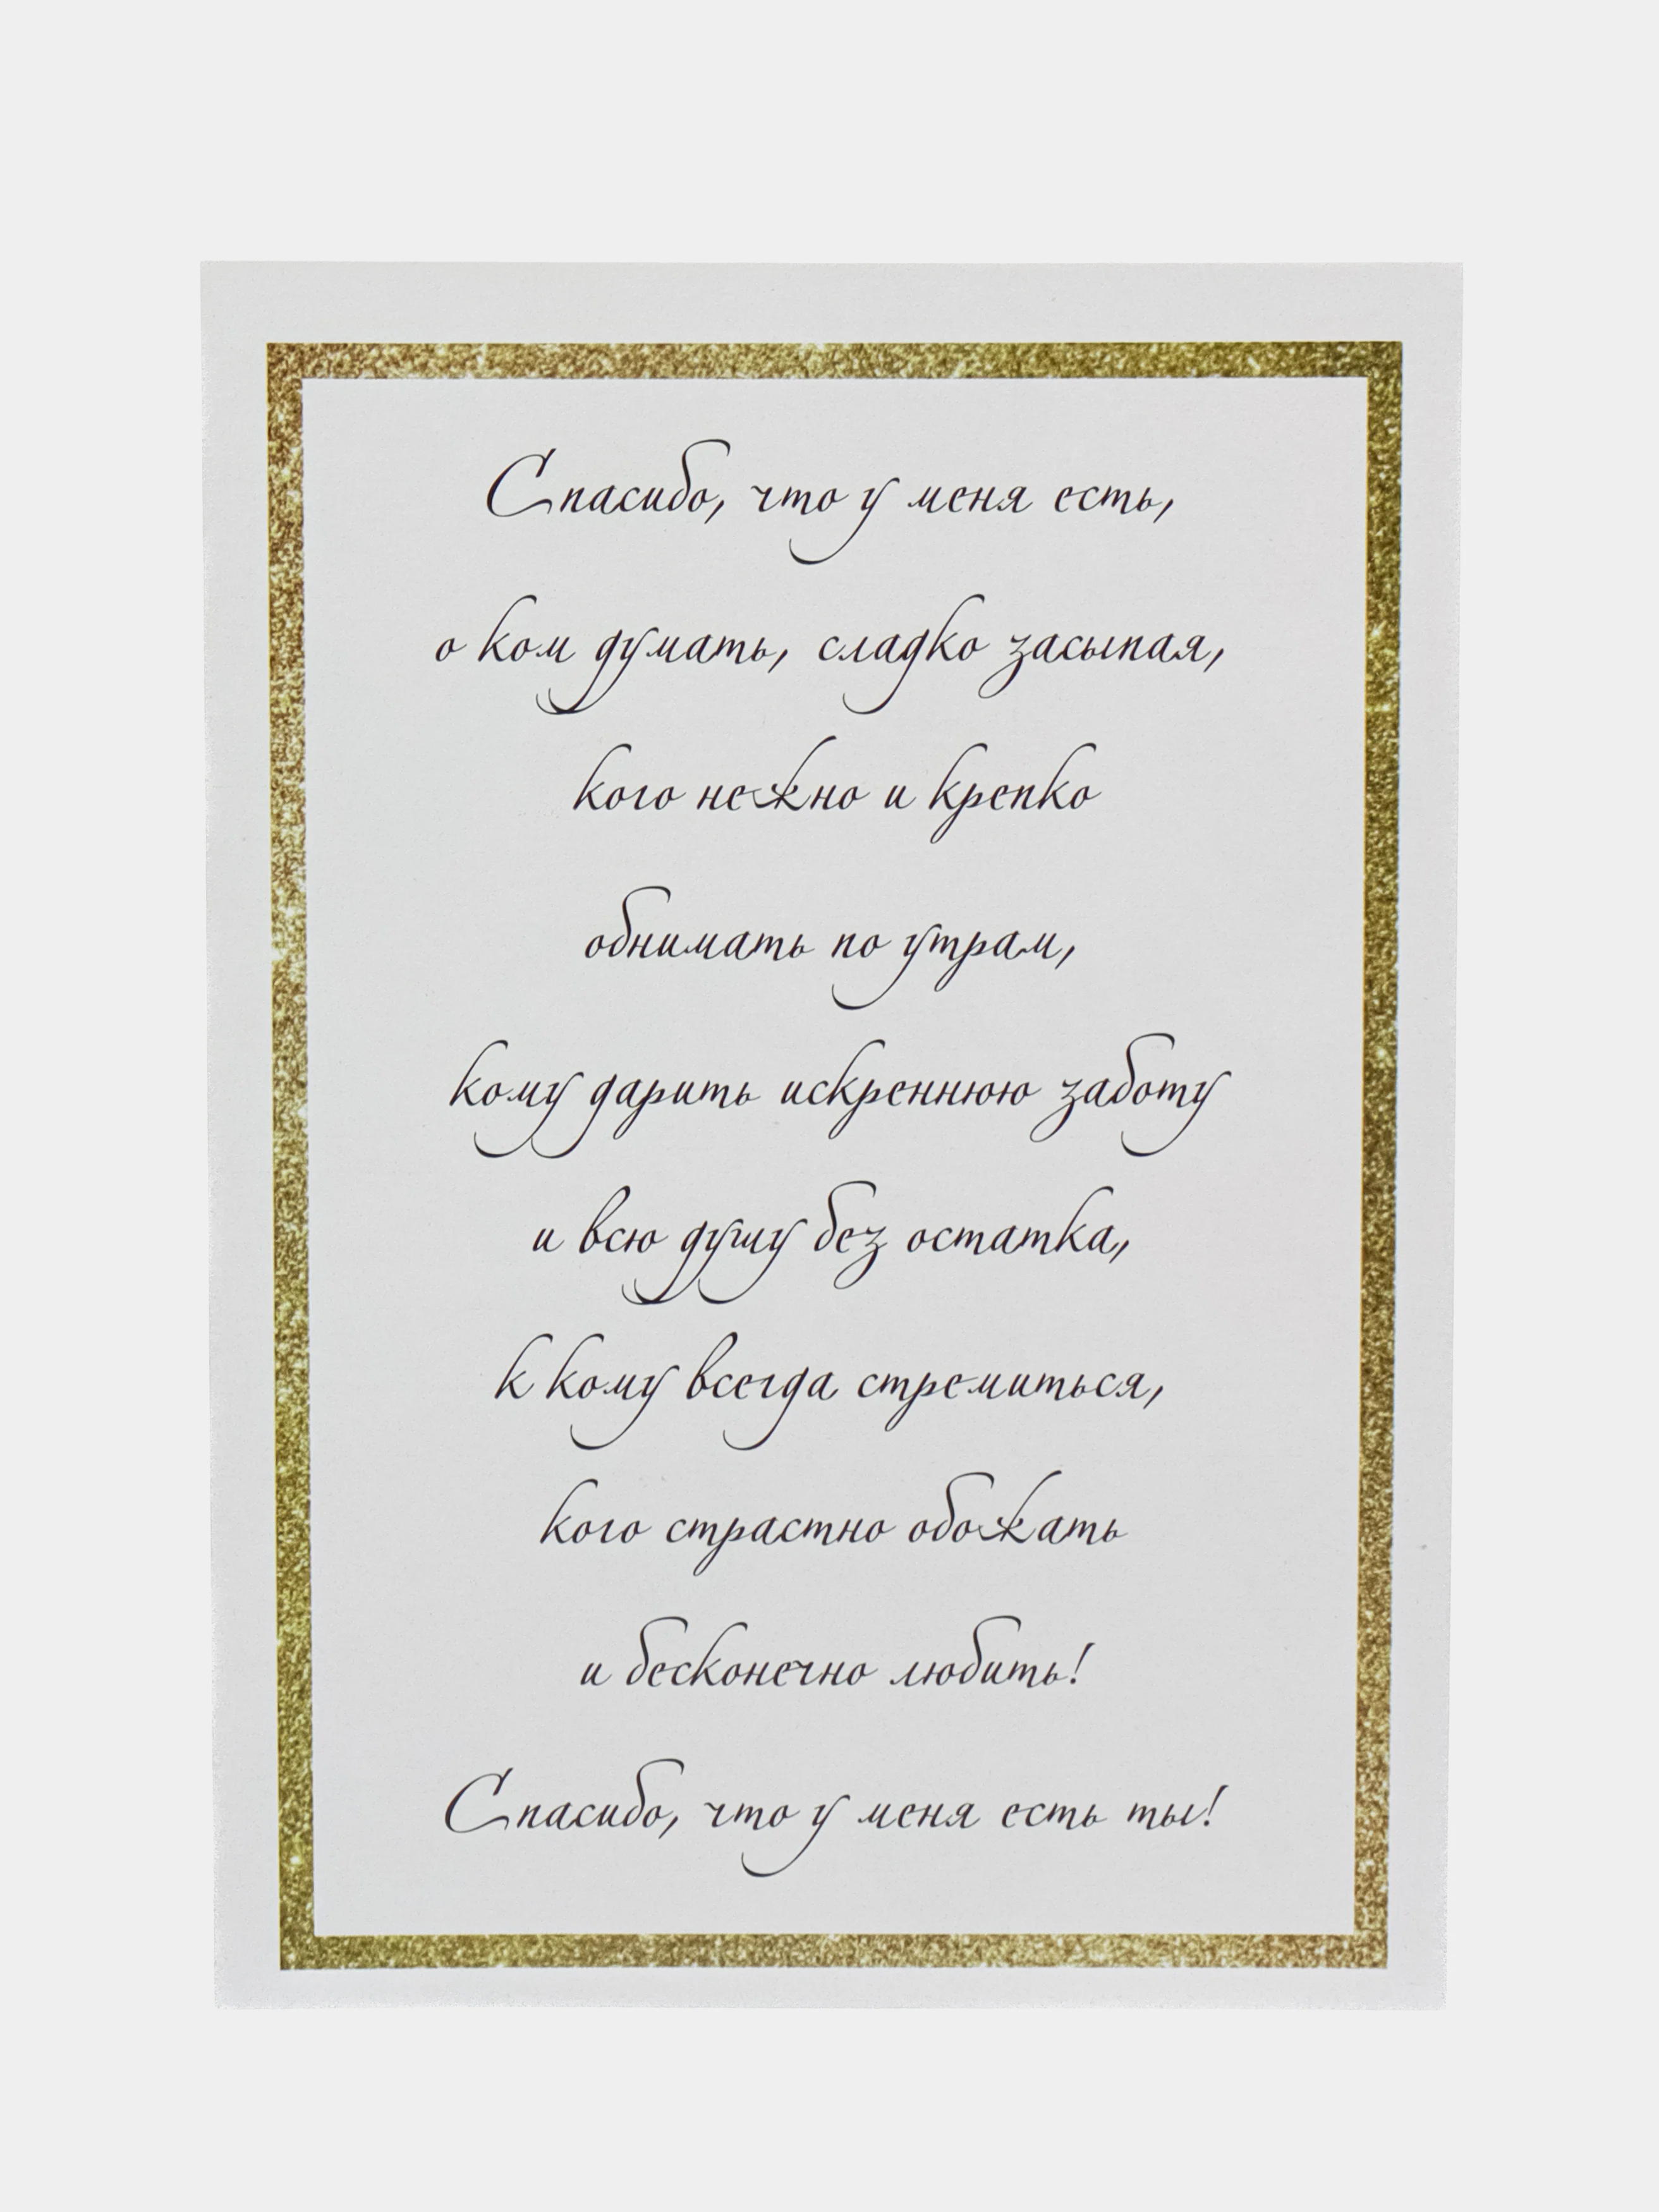 Спасибо, что у меня есть,
о ком думать, сладко засыпая,
кого нежно и крепко
обнимать по утрам,
кому дарить искреннюю заботу
и всю душу без остатка,
к кому всегда стремиться,
кого страстно обожать
и бесконечно любить!
Спасибо, что у меня есть ты!